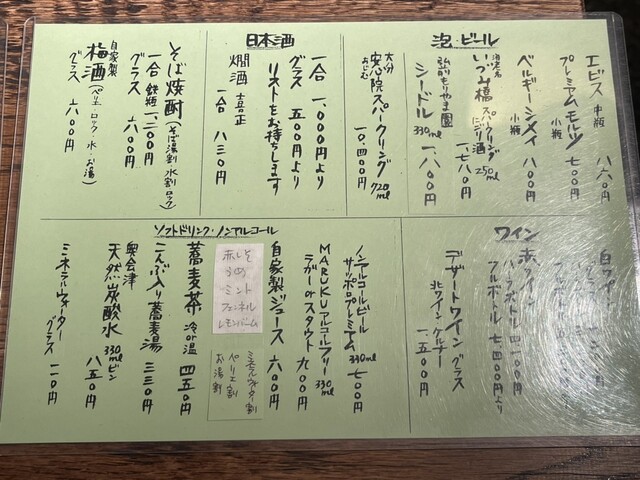 泡・ビール
エビス 中瓶 八六〇円
プレミアムモルツ 小瓶 七〇〇円
ベルギーシメイ 小瓶 八〇〇円
いづみ橋 スパークリング にごり酒 250ml 一、七八〇円
弘前もりやま園
シードル 330ml 一、八〇〇円
大分
安心院スパークリング 720ml
あじむ
一〇、四〇〇円
日本酒
一合 一、〇〇〇円より
グラス 五〇〇円より
リストをお持ちします
燗酒 喜正
一合 八三〇円
そば焼酎(そば湯割 水割 ロック)
一合 鉄瓶 一、二〇〇円
グラス 六〇〇円
自家製
梅酒(ペリエ・ロック・水・お湯)
グラス 六〇〇円
ワイン
白ワイン
赤ワイン
ハーフボトル 四、一〇〇円
フルボトル 七、四〇〇円より
デザートワイン グラス
北ワイン ケルナー
一、五〇〇円
ソフトドリンク・ノンアルコール
ノンアルコールビール
サッポロプレミアム 330ml 七〇〇円
MARUKU アルコールフリー
ラガー or スタウト 330ml 九〇〇円
自家製ジュース 六〇〇円
赤しそ
うめ
ミント
フェンネル
レモンバーム
ミネラルウォーター割
ペリエ割
お湯割
蕎麦茶 冷or温 四五〇円
こんぶ入り蕎麦湯 三三〇円
奥会津
天然炭酸水 330mlビン 八五〇円
ミネラルウォーター
グラス 一一〇円